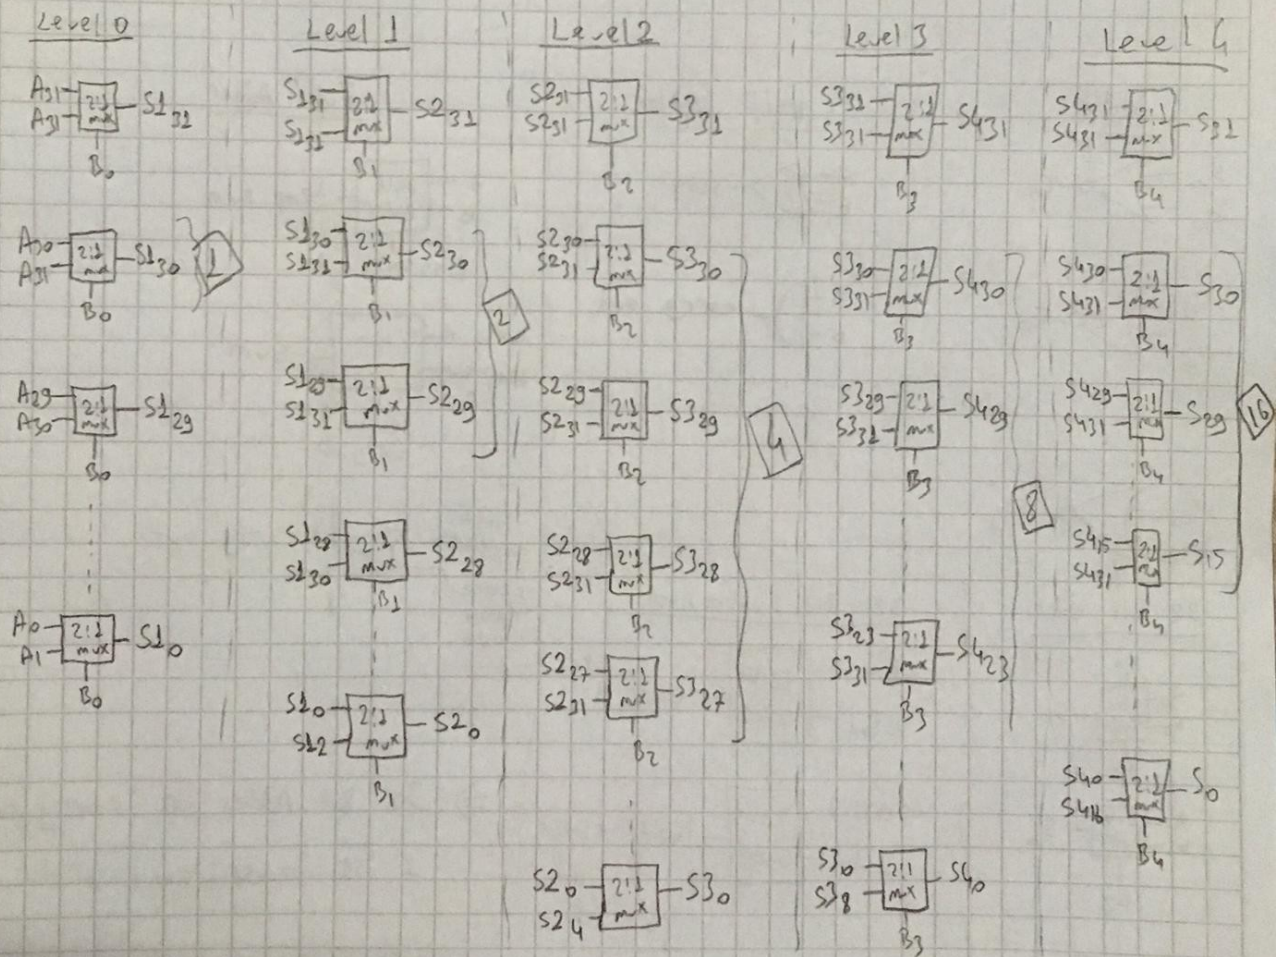 Level 0
A31
A31
2:1
mux
S1 31
B0
A30
A31
2:1
mux
S1 30
B0
1
A29
A30
2:1
mux
S1 29
B0
A0
A1
2:1
mux
S1 0
B0
Level 1
S1 31
S1 31
2:1
mux
S2 31
B1
S1 30
S1 31
2:1
mux
S2 30
B1
2
S1 29
S1 31
2:1
mux
S2 29
B1
S1 28
S1 30
2:1
mux
S2 28
B1
S1 0
S1 2
2:1
mux
S2 0
B1
Level 2
S2 31
S2 31
2:1
mux
S3 31
B2
S2 30
S2 31
2:1
mux
S3 30
B2
S2 29
S2 31
2:1
mux
S3 29
B2
4
S2 28
S2 31
2:1
mux
S3 28
B2
S2 27
S2 31
2:1
mux
S3 27
B2
S2 0
S2 4
2:1
mux
S3 0
Level 3
S3 31
S3 31
2:1
mux
S4 31
B3
S3 30
S3 31
2:1
mux
S4 30
B3
S3 29
S3 31
2:1
mux
S4 29
B3
8
S3 23
S3 31
2:1
mux
S4 23
B3
S3 0
S3 8
2:1
mux
S4 0
B3
Level 4
S4 31
S4 31
2:1
mux
S31
B4
S4 30
S4 31
2:1
mux
S30
B4
S4 29
S4 31
2:1
mux
S29
B4
16
S4 15
S4 31
2:1
mux
S15
B4
S4 0
S4 16
2:1
mux
S0
B4